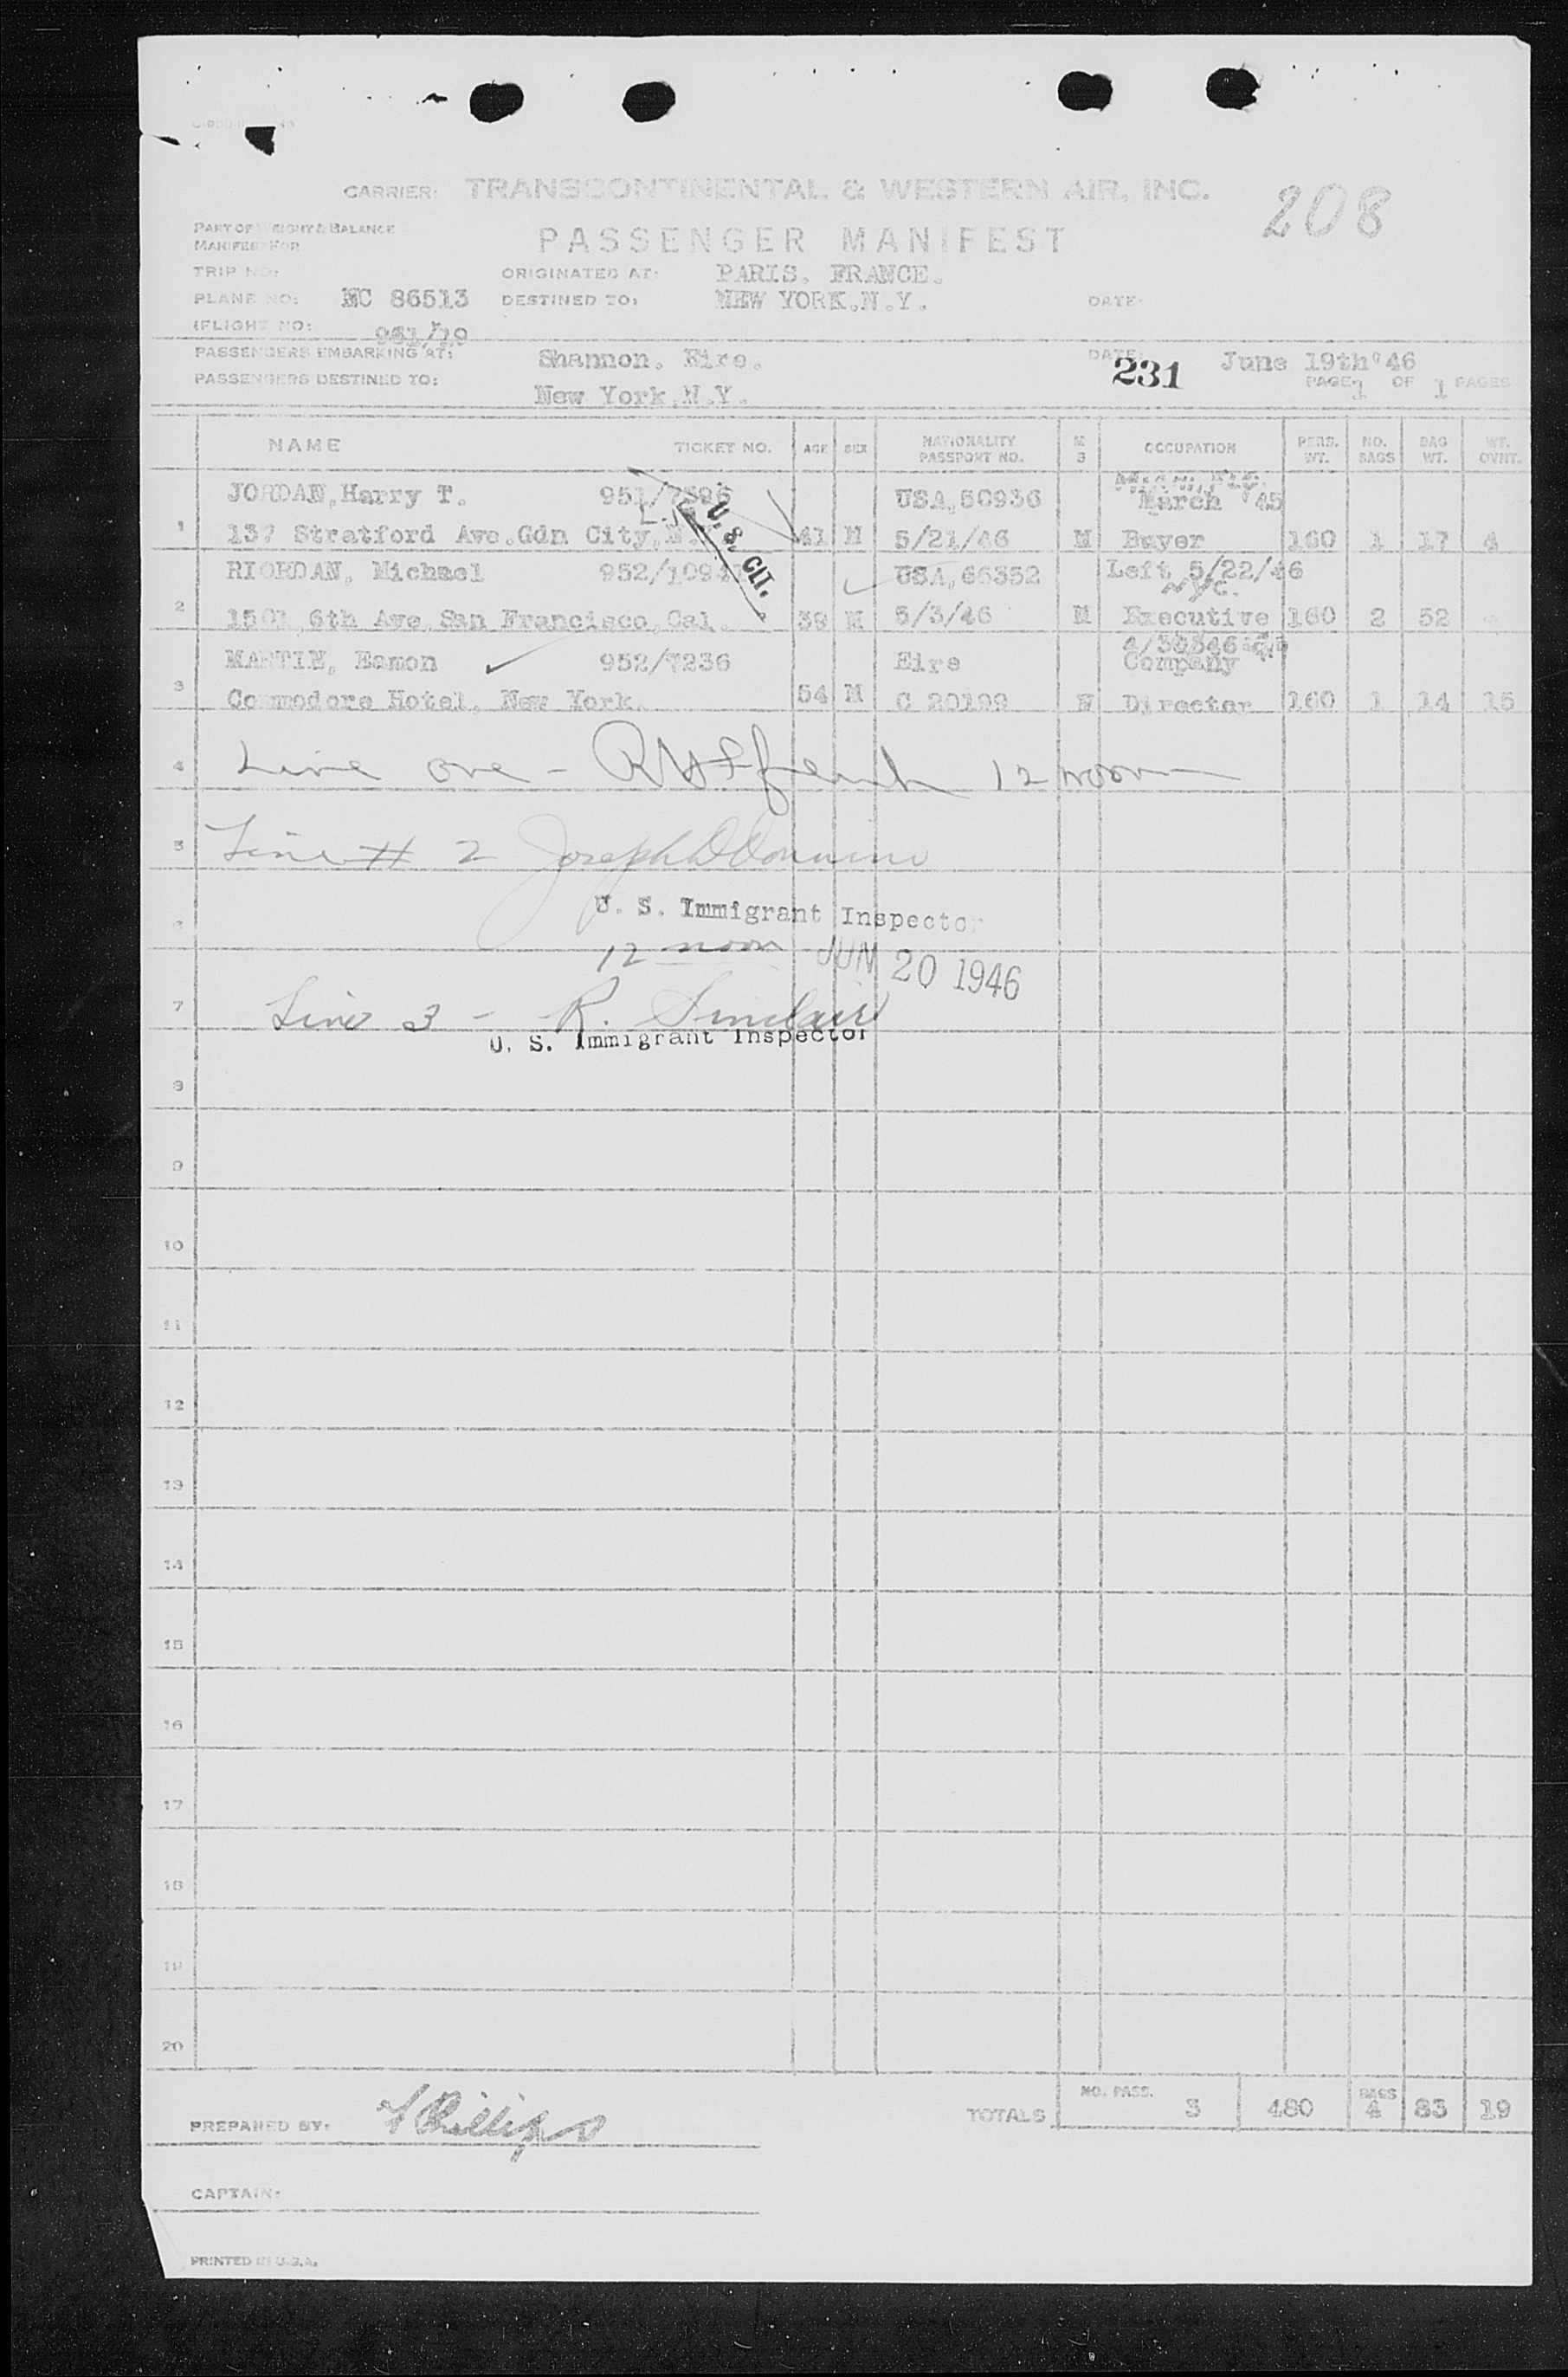 CARRIER: TRANSCONTINENTAL & WESTERN AIR, INC.
208
PART OF WEIGHT & BALANCE
MANIFEST FOR
PASSENGER MANIFEST
TRIP NO: ORIGINATED AT: PARIS, FRANCE.
PLANE NO: NC 86513 DESTINED TO: NEW YORK,N.Y. DATE:
(FLIGHT NO: 961/19
PASSENGERS EMBARKING AT: Shannon, Eire. DATE: June 19th'46
231
PASSENGERS DESTINED TO: New York,N.Y. PAGE 1 OF 1 PAGES
NAME TICKET NO. AGE SEX NATIONALITY PASSPORT NO. M S OCCUPATION PERS. WT. NO. BAGS BAG WT. WT. OVWT.
JORDAN,Harry T. 951/7596 USA,50936 March '45
1 137 Stratford Ave.Gdn City, 41 M 5/21/46 M Buyer 160 1 17 4
L.I.
U. S. CIT.
RIORDAN, Michael USA,66352 Left 5/22/46
NYC.
2 1501 6th Ave San Francisco,Cal. 39 M 5/3/46 M Executive 160 2 52
MARTIN, Eamon 952/7236 Eire Company
3 Commodore Hotel, New York. 54 M C 20199 Director 160 1 14 15
4 Line one - 12 noon
5 Line # 2 Joseph D
6 U. S. Immigrant Inspector
12 noon JUN 20 1946
7 Line 3 - R. Sinclair
U. S. Immigrant Inspector
8
9
10
11
12
13
14
15
16
17
18
19
20
TOTALS NO. PASS. 3 480 BAGS 4 83 19
PREPARED BY: Phillips
CAPTAIN:
PRINTED IN U.S.A.